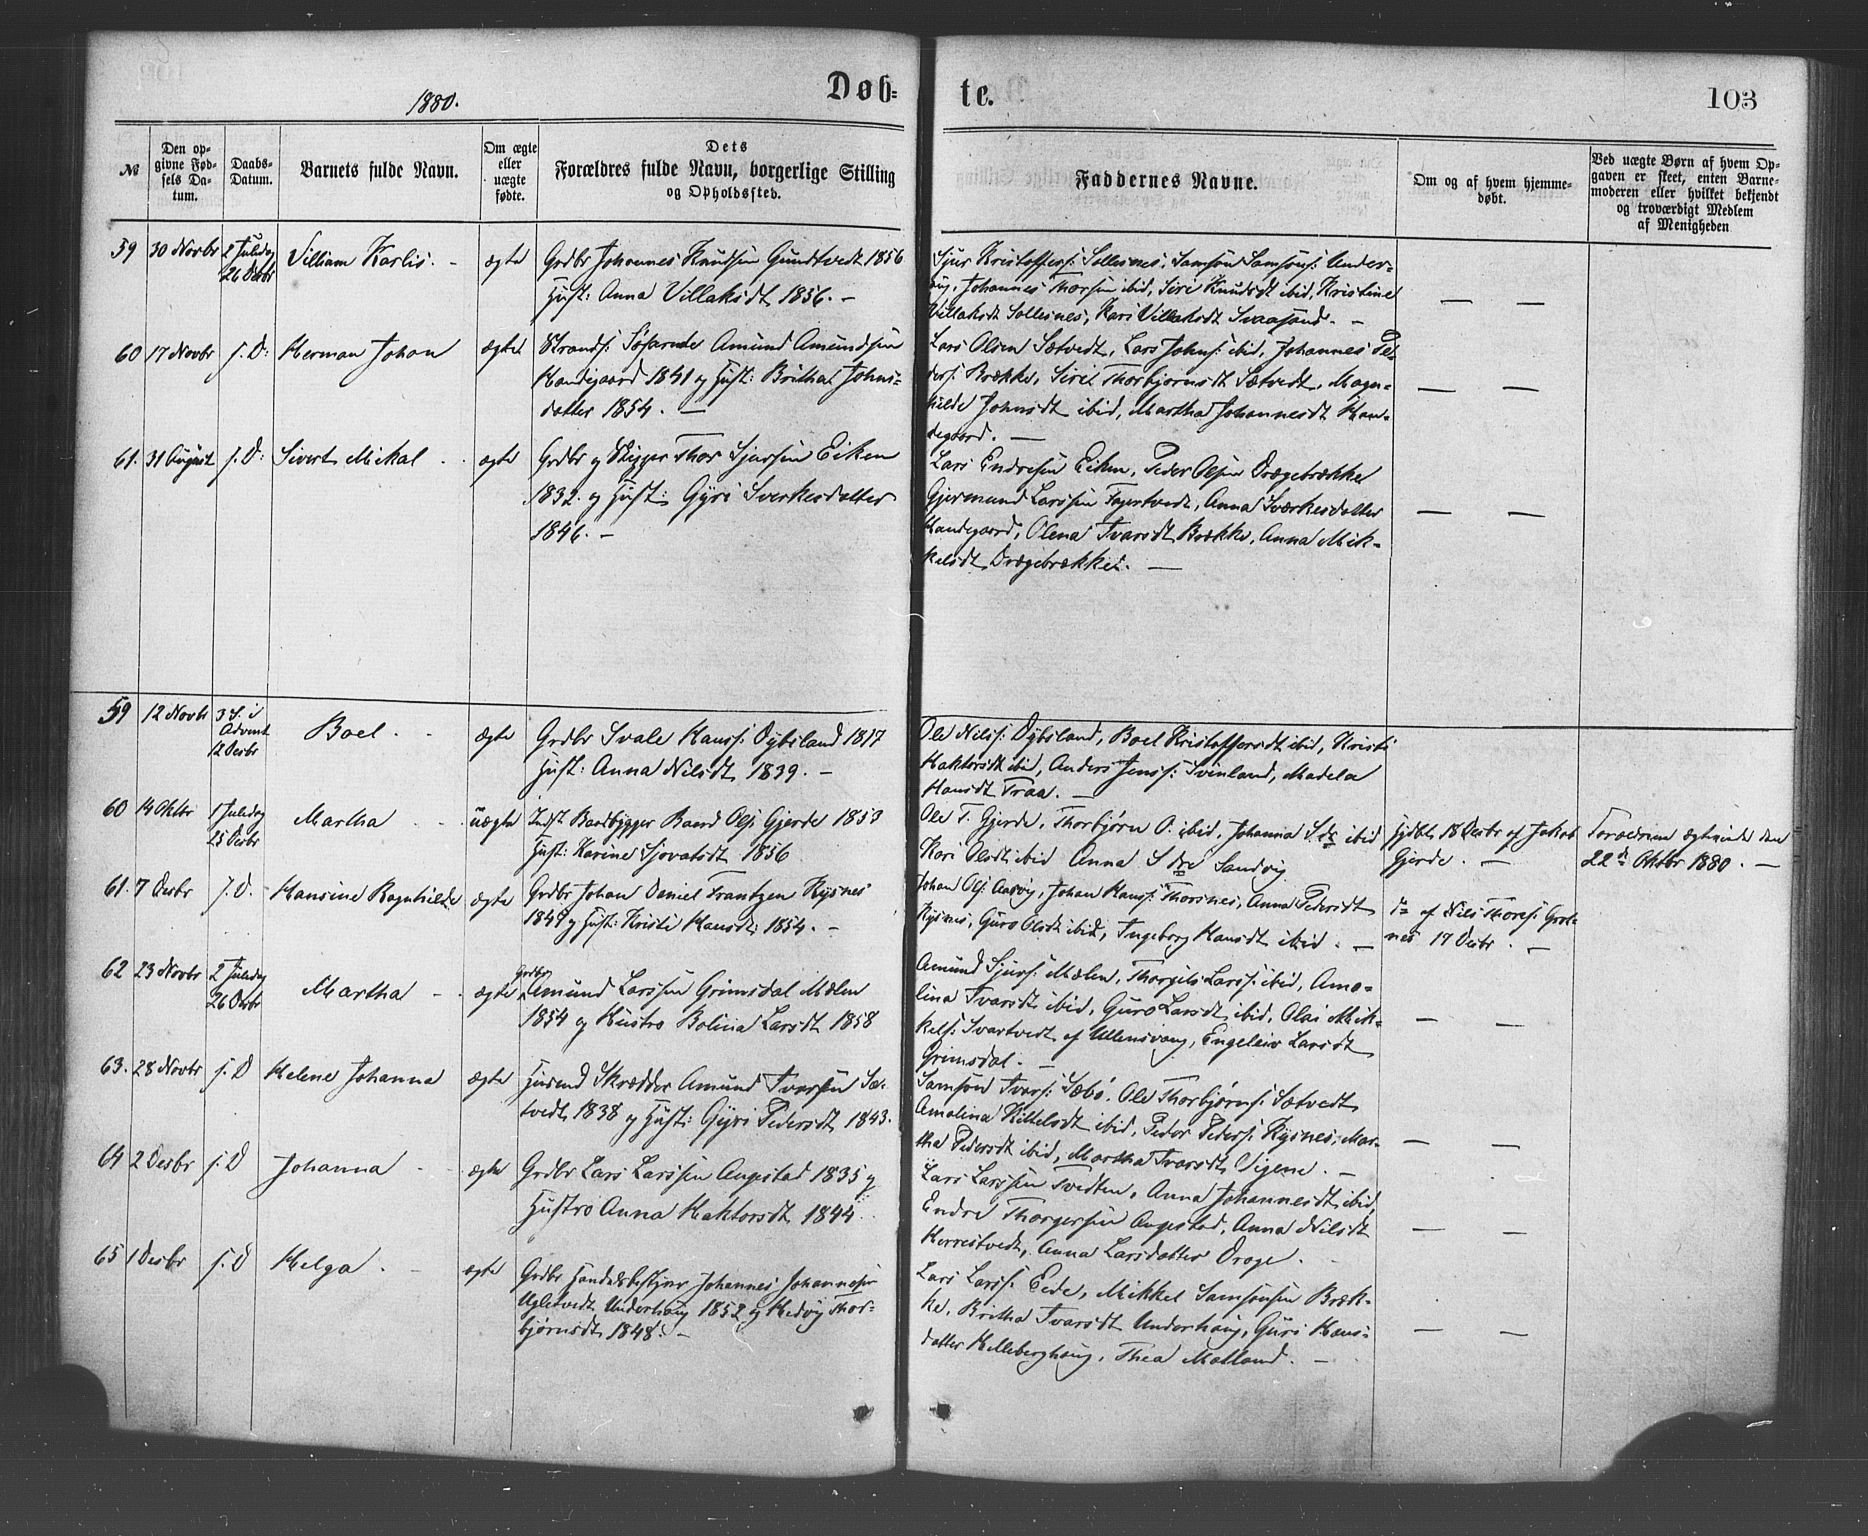 1880.
Døb-
te.
103
№
Den op-
givne Fød-
sels Da-
tum.
Daabs-
Datum.
Barnets fulde Navn.
Om ægte
eller
uægte
fødte.
Dets
Forældres fulde Navn, borgerlige Stilling
og Opholdssted.
Faddernes Navne.
Om og af hvem hjemme-
døbt.
Ved uægte Børn af hvem Op-
gaven er skeet, enten Barne-
moderen eller hvilket bekjendt
og troværdigt Medlem
af Menigheden
59 30 Novbr 2 Juledag
26 Desbr
Villiam Karlis. - ægte
Grdbr Johannes Knudsen Gundtvedt 1856
Hust: Anna Villaksdt 1856. -
Sjur Kristoffers: Sollesnes, Samson Samsons: Under-
haug, Johannes Thorsen ibid, Siri Knudsdt ibid, Kristine
Villaksdt Sollesnes, Kari Villaksdt Svaasand. -
— —
60 17 Novbr s. D: Herman Johan ægte
Strands: Søfarende Amund Amundsen
Handegaard 1841 og Hust: Britha Johns-
datter 1854. —
Lars Olsen Sætvedt, Lars Johns: ibid, Johannes Pe-
ders: Brække, Siri Thorbjørnsdt Sætvedt, Magn-
hilde Johnsdt ibid, Martha Johannesdt Han-
degaard. —
— —
61. 31 August s. D: Sivert Mikal - ægte
Grdbr og Skipper Thor Sjursen Eiken
1832. og Hust: Gyri Sverkesdatter
1846. -
Lars Endresen Eiken, Peder Olsen Drægebrække
Gjermund Larssen Fagertvedt, Anna Sværkesdatter
Handegaard, Olena Ivarsdt Brække, Anna Mik-
kelsdt Drægebrekke. —
— —
59 12 Novbr 3 S. i
Advent
12 Desbr
Boel - - ægte
Grdbr Svale Hanss: Dybsland 1817
Hust: Anna Nilsdt 1839. -
Ole Nilss: Dybsland, Boel Kristoffersdt ibid, Kristi
Haktorsdt ibid, Anders Jenss: Svinland, Madela
Hansdt Traa. —
60 14 Oktbr 1 Juledag
25 Desbr
Martha - - uægte
Indst Baadbygger Rand Ols: Gjerde 1853
Hust: Karine Sjovatsdt 1856
Ole T. Gjerde, Thorbjørn O. ibid, Johanna S.dr ibid
Kari Olsdt ibid Anna S dre Sandvig.
Hjdbt 18 Desbr af Jakob
Gjerde. —
Forældrene ægteviede den
22de Oktbr 1880. —
61. 7 Desbr s. D. Hansine Ragnhilde ægte
Grdbr Johan Daniel Frantzen Rysnes
1847 og Hust: Kristi Hansdt 1854. -
Johan Ols: Aarvig, Johan Hanss: Thorsnes, Anna Pedersdt
Rysnes, Guro Olsdt ibid, Ingeborg Hansdt ibid. —
do af Nils Thores: Grot-
nes 17 Desbr. —
62 23 Novbr 2 Juledag
26 Desbr
Martha - - ægte
Grdbr
Amund Larssen Grimsdal Mælen
1854 og Hustro Bolina Larsdt 1858
Amund Sjurs: Mælen, Thorgils Larss: ibid, Amo-
lina Ivarsdt ibid, Guro Larsdt ibid, Olai Mik-
kels: Svartvedt af Ullensvang, Engeleiv Larsdt
Grimsdal. —
— —
63. 28 Novbr s. D Helene Johanna ægte
Husmd Skrædder Amund Ivarsen Sæ-
tvedt 1838 og Hust: Gyri Pedersdt 1843.
Samson Ivars: Sæbø, Ole Thorbjørns: Sætvedt
Amalina Kittelsdt ibid, Peder Peders: Rysnes, Mar-
tha Pedersdt ibid, Martha Ivarsdt Digene. —
— —
64 2 Desbr s. D Johanna - - ægte
Grdbr Lars Larssen Augestad 1835 og
Hustro Anna Haktorsdt 1844.
Lars Larssen Tvedten, Anna Johannesdt ibid,
Endre Thorgersen Augestad, Anna Nilsdt
Herrestvedt, Anna Larsdatter Droge.
— —
65 1 Desbr s. D Helga. - ægte
Grdbr Handelsbestyrer Johannes Johannesen
Ugletvedt Underhaug 1852 og Hedvig Thor-
bjørnsdt 1848. -
Lars Larss: Eide, Mikkel Samsonsen Bræk-
ke, Britha Ivarsdt Underhaug, Guri Hans-
datter Helleberghaug, Thea Malland. —
— —